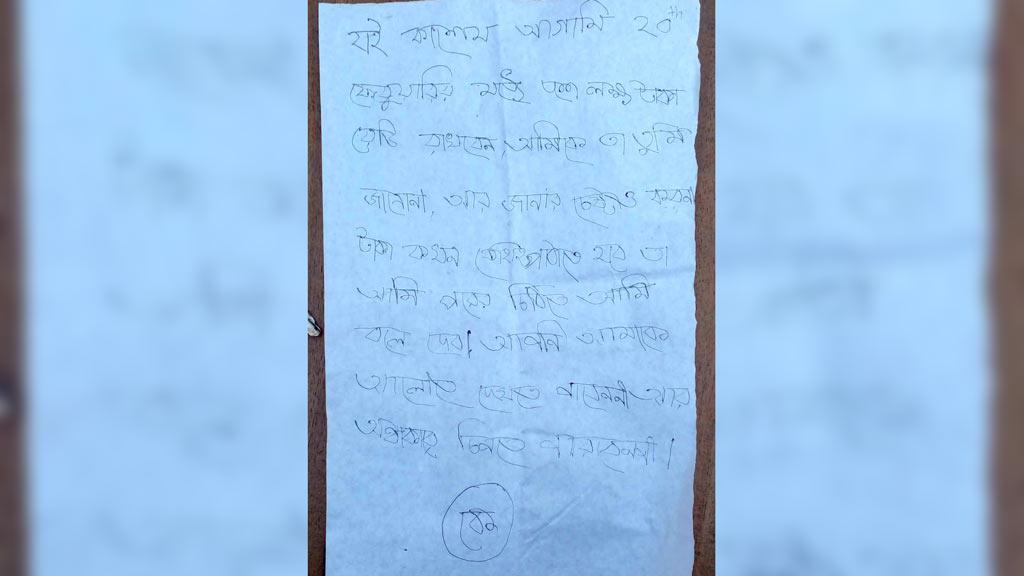 যাই কাশেম আগামি ২০th
ফেব্রুয়ারির মধ্যে লক্ষ টাকা
রেডি রাখবেন, আমিকে তা তুমি
জানোনা, আর জানার চেষ্টাও করবনা
টাকা কখন কোথায় পাঠাতে হবে তা
আমি পরের চিঠিতে আমি
বলে দেব। আপনি আমাকে
আলোতে দেখতে পাবেননা আর
অন্ধকারে চিনতে পারবেননা।